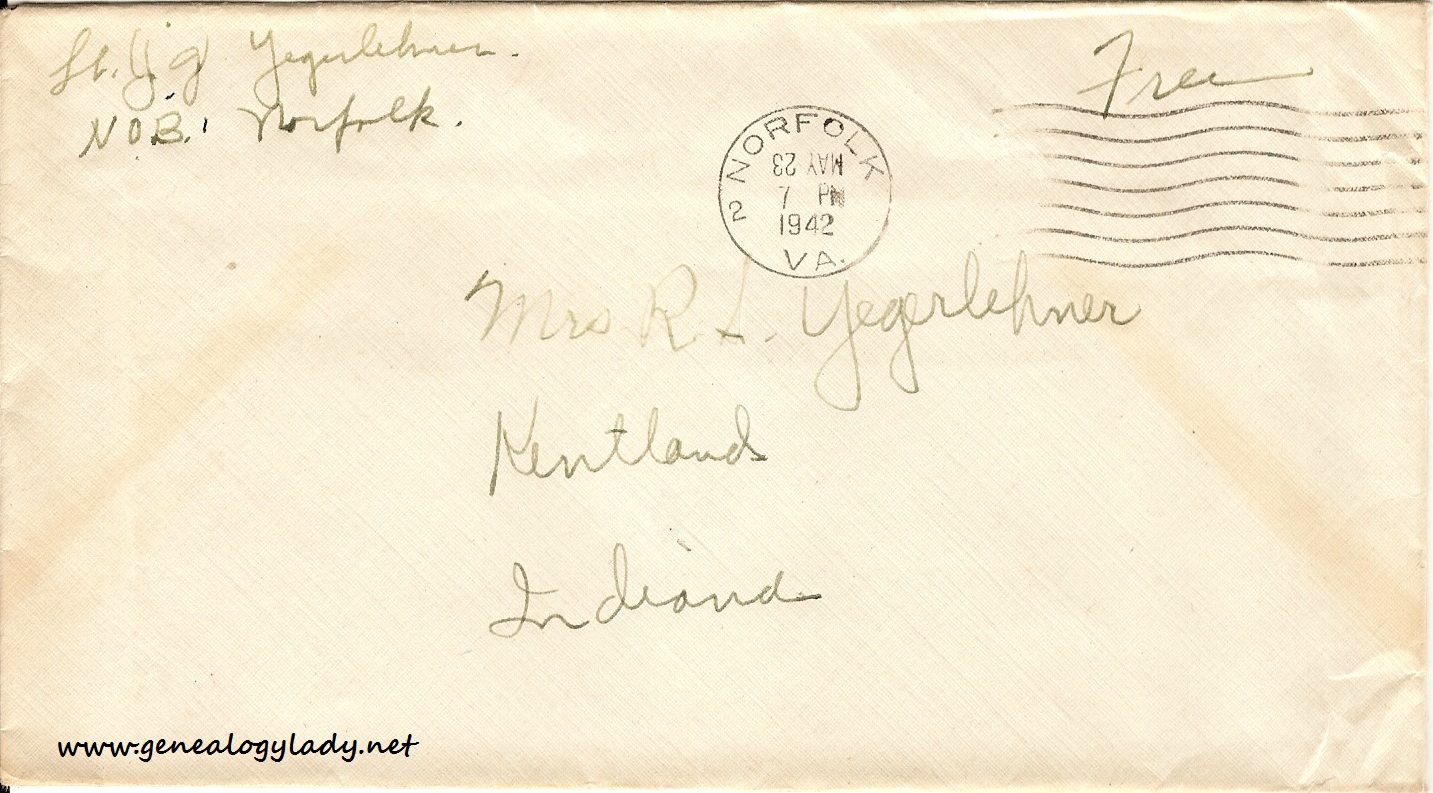 Lt. (jg) Yegerlehner.
N.O.B. Norfolk.
Free
NORFOLK
MAY 23
7 PM
1942
2
VA.
Mrs R. S. Yegerlehner
Kentland
Indiana
www.genealogylady.net